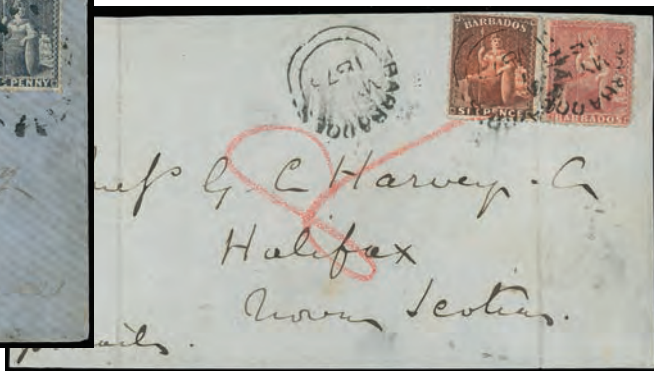 PENNY
BARBADOS
SIXPENCE
BARBADOS
BARBADOES
187
G. C. Harvey. C
Halifax
Nova Scotia.